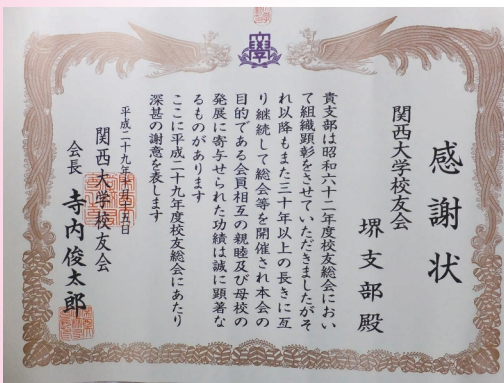 感謝状
関西大学校友会
堺支部殿
貴支部は昭和六十二年度校友総会におい
て組織顕彰をさせていただきましたがそ
れ以降もまた三十年以上の長きに亙
り継続して総会等を開催され本会の
目的である会員相互の親睦及び母校の
発展に寄与せられた功績は誠に顕著な
るものがあります
ここに平成二十九年度校友総会にあたり
深甚の謝意を表します
平成二十九年十月十五日
関西大学校友会
会長 寺内俊太郎